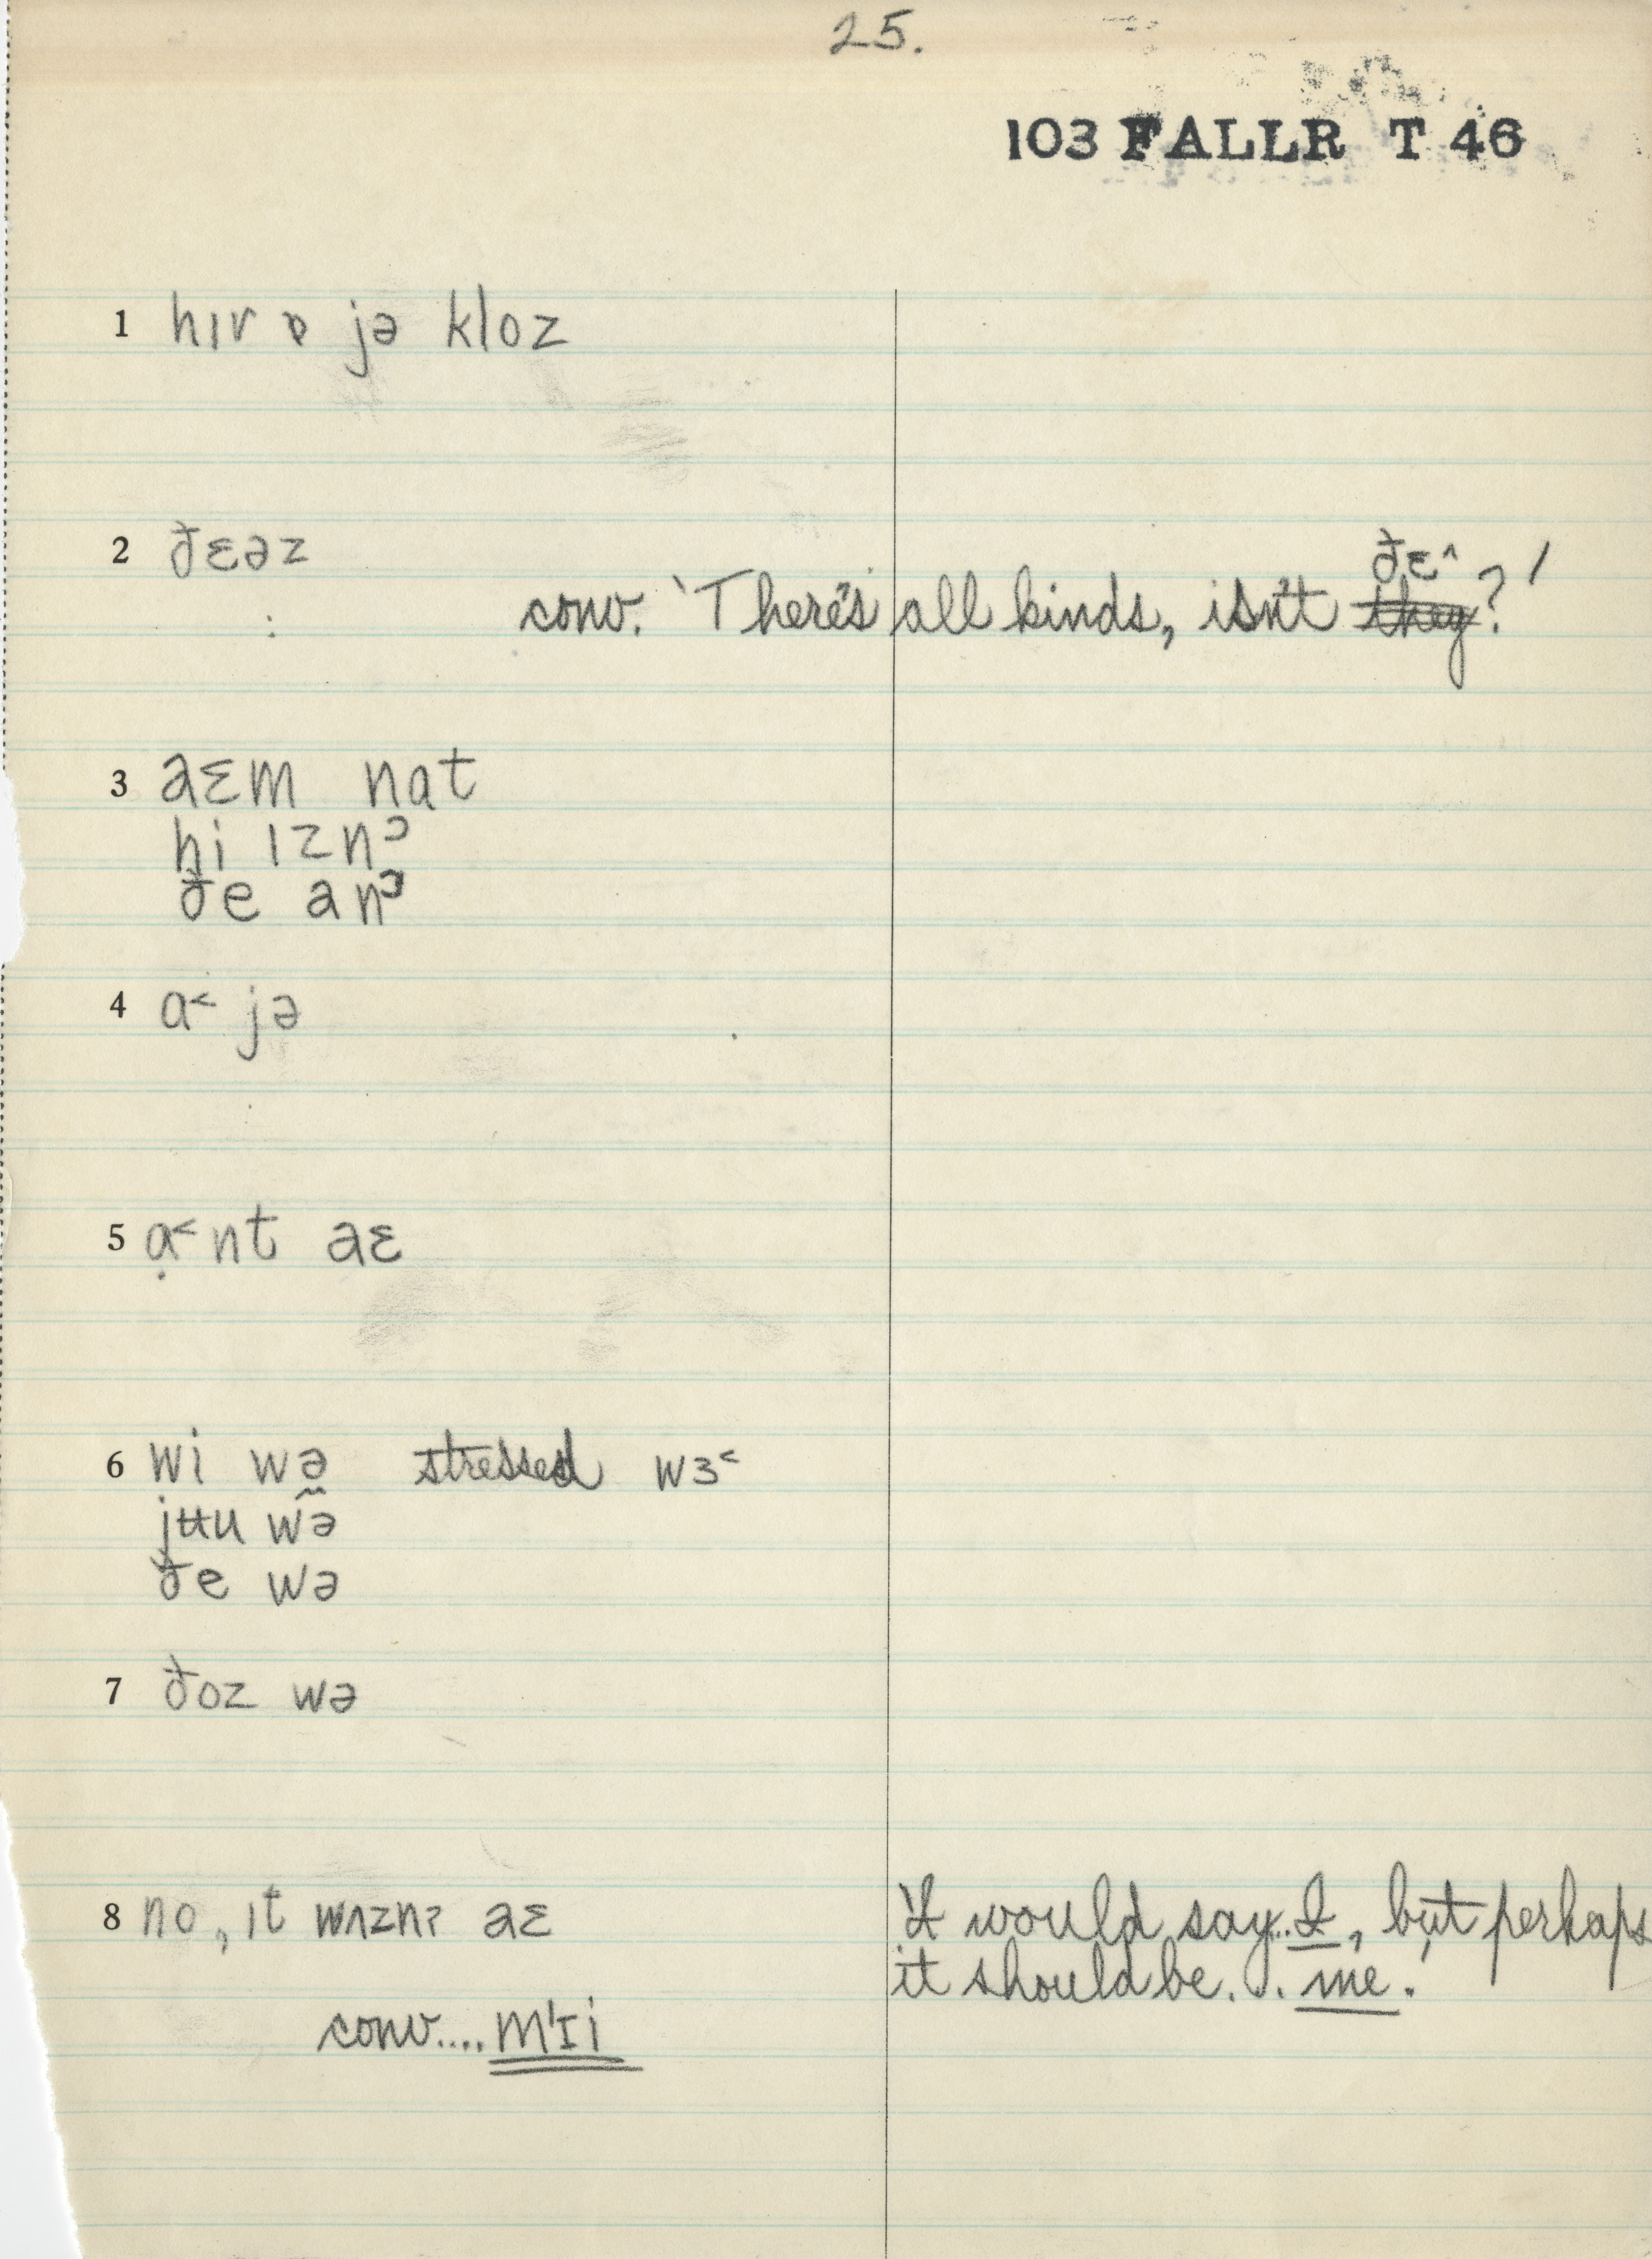 25.
103 FALLR T 46
1 hɪr ɒ jə kloz
2 ðɛəz
conv. 'There's all kinds, isn't ðɛ^ they?'
3 aɛm nat
hi ɪzn ͻ
ðe an ͻ
4 ɑ˂ jə
5 ɑ̣˂nt aɛ
6 wi wə stressed wɜ˂
jʉu wə̃
ðe wə
7 ðoz wə
8 no, ɪt wʌznʔ aɛ
'It would say...I, but perhaps
it should be...me.'
conv.... mˈɪi